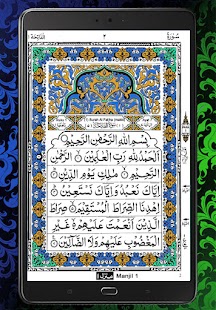 الفاتحة ١
٢
سُورَةُ
بِسْمِ اللهِ الرَّحْمٰنِ الرَّحِيْمِ
اَلْحَمْدُ لِلّٰهِ رَبِّ الْعٰلَمِيْنَ الرَّحْمٰنِ
الرَّحِيْمِ مٰلِكِ يَوْمِ الدِّيْنِ
اِيَّاكَ نَعْبُدُ وَاِيَّاكَ نَسْتَعِيْنُ
اِهْدِنَا الصِّرَاطَ الْمُسْتَقِيْمَ صِرَاطَ
الَّذِيْنَ اَنْعَمْتَ عَلَيْهِمْ غَيْرِ
الْمَغْضُوْبِ عَلَيْهِمْ وَلَا الضَّآلِّيْنَ
Manjil 1